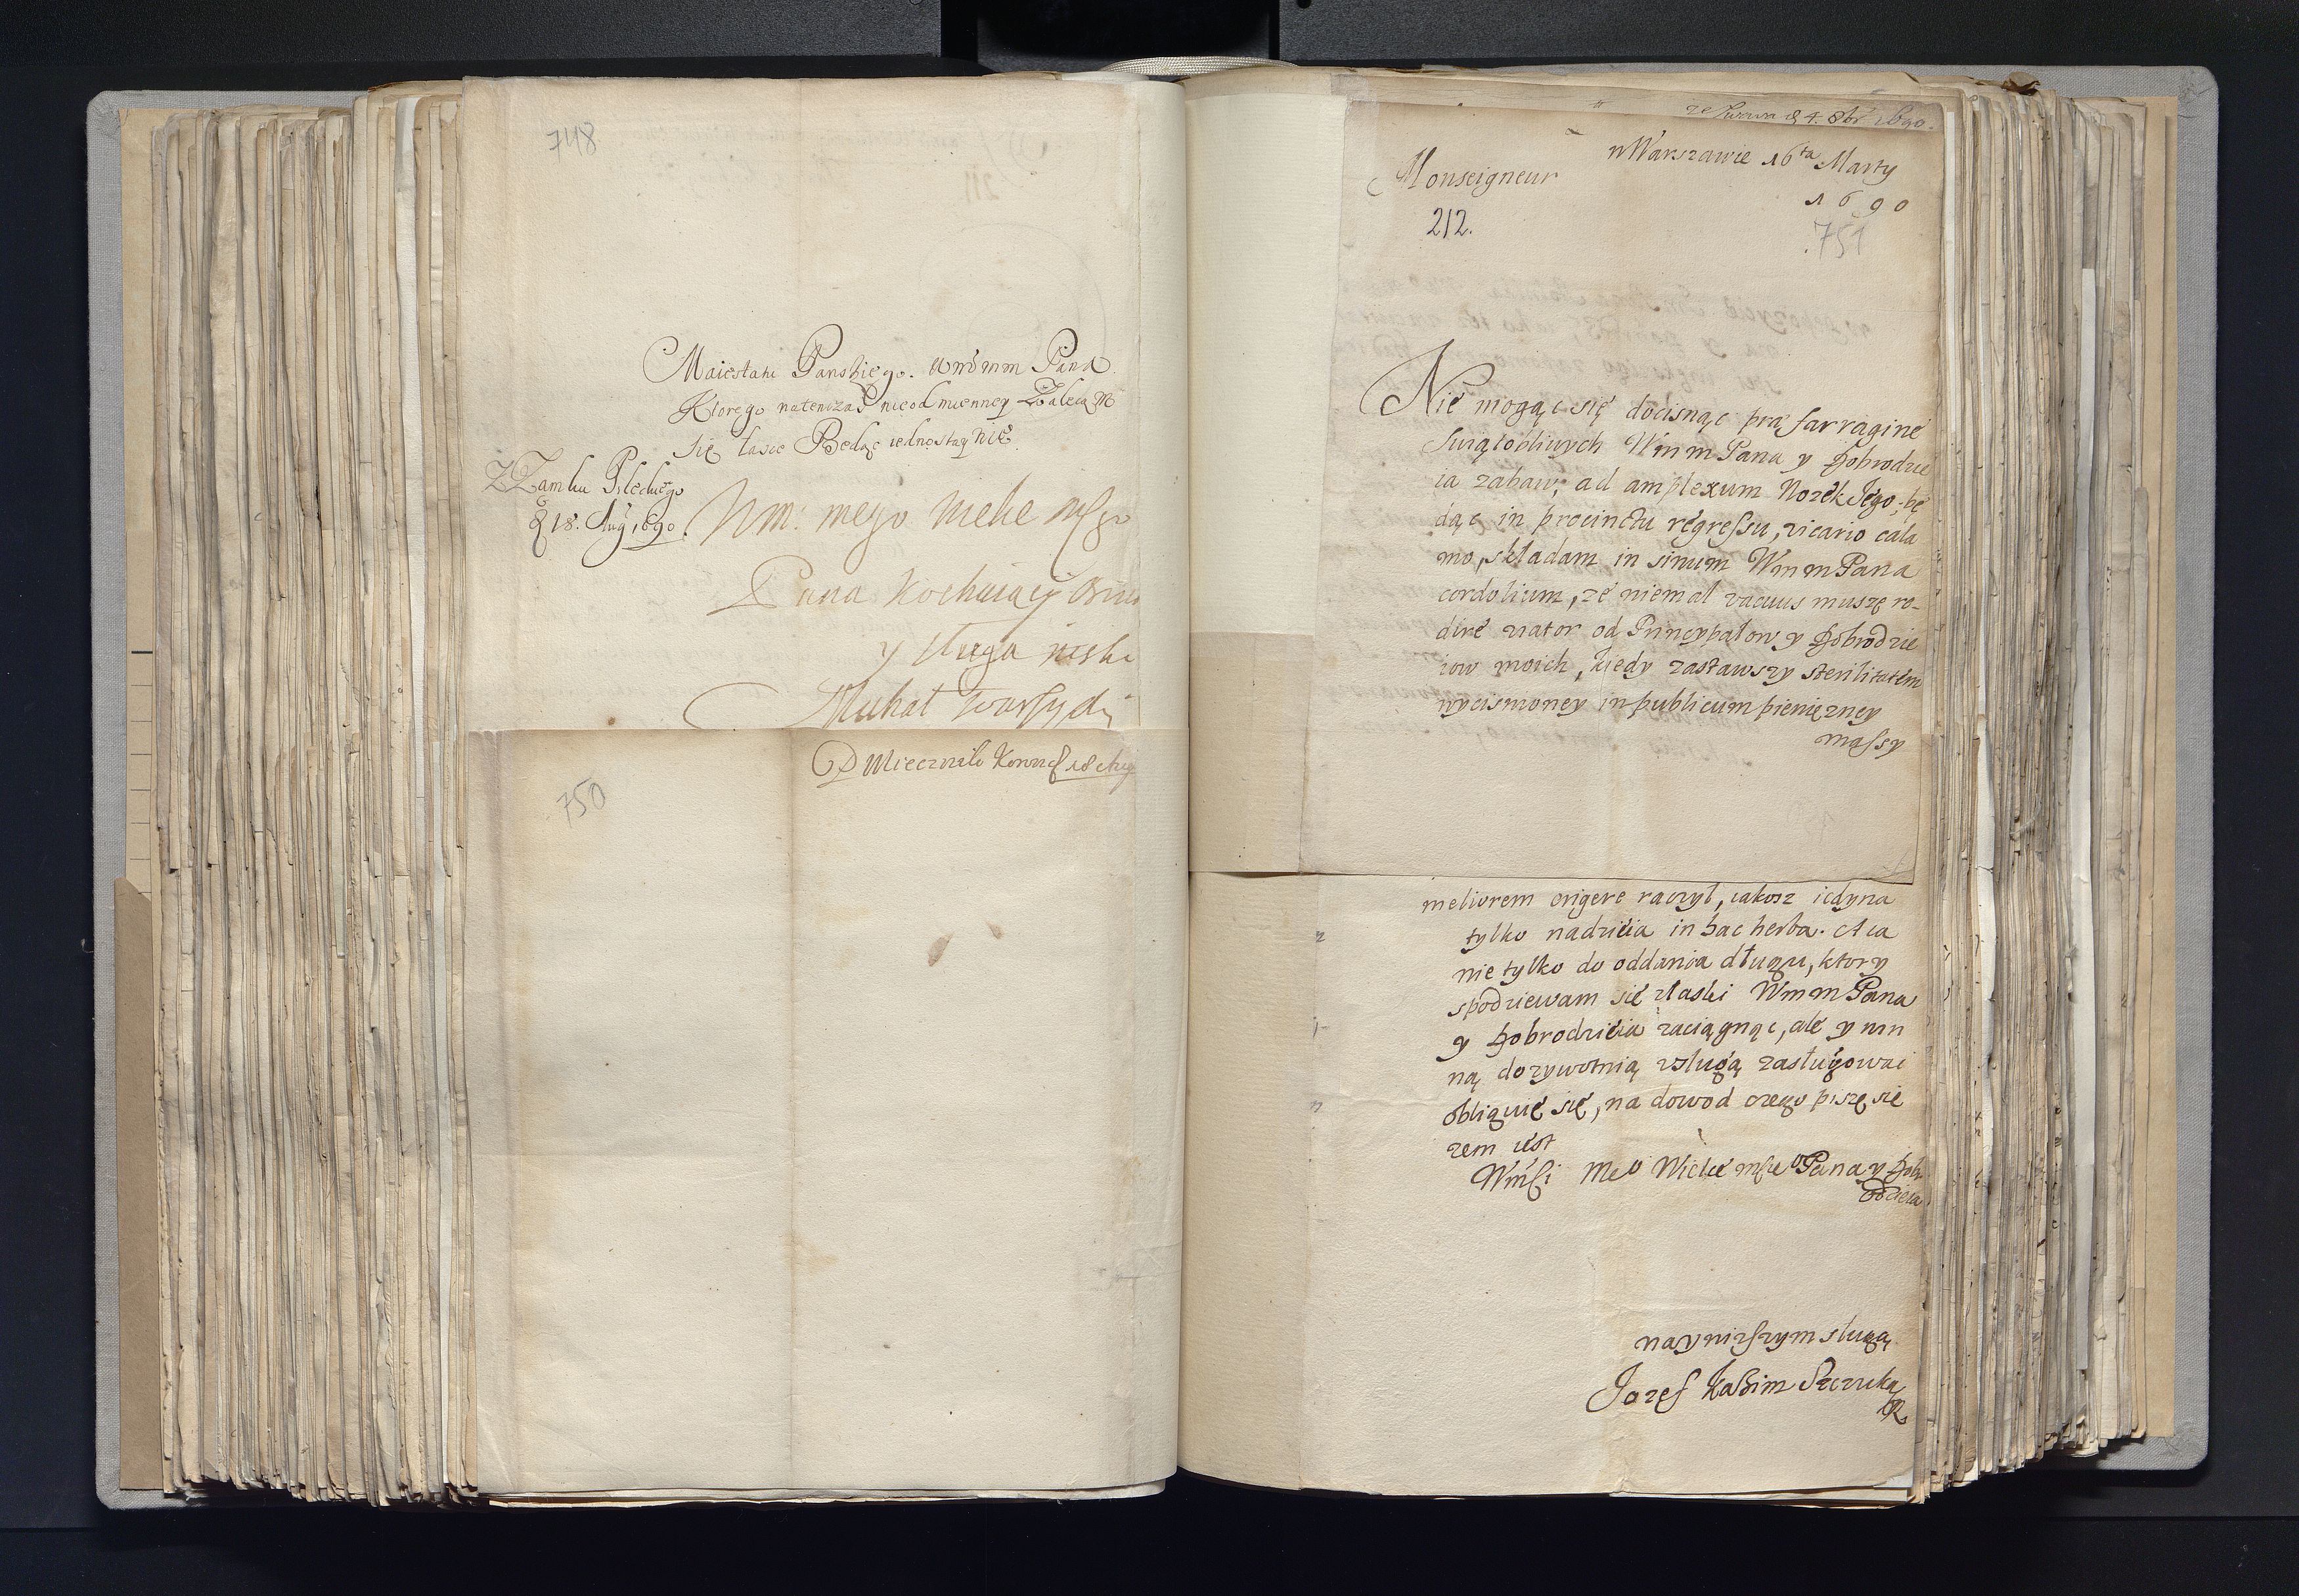 748
Maiestatu Panskiego. Wmmm Pana
Ktorego natenczas nieodmienney Zalecam
się łasce Będąc iednostaynie
Z Zamku Pileckiego
18. Aug 1690.
Wm: mego
Pana Kochaiący
y sługa niski
Michał
Miecznik Koron 18 Aug
750
ze Lwowa d 4. 8br 1690.
w Warszawie 16ta Marty
1690
Monseigneur
212.
751
Nie mogąc się docisnąc præ farragine
Swiątobliwych Wm m Pana y Dobrodzie
ia zabaw, ad amplexum Nozek Jego, bę
dąc in procinctu regressu, vicario cala
mo, składam in sinum Wm m Pana
cordolium, ze niemal vacuus muszę re-
dire viator od Pryncypałow y Dobrodzie
iow moich, kiedy zastawszy sterilitatem
wycisnioney in publicum pienięzney
massy
meliorem erigere raczył, iakosz iedyna
tylko nadzieia in hac herba. A ia
nie tylko do oddania długu, ktory
spodziewam się z łaski Wm m Pana
y Dobrodzieia zaciągnąc, ale y
ną dozywotnią usługą zasługowac
obliguię się, na dowod czego piszę się
zem iest
Wmsci Me° Wielce msce° Pana y Dobr
odzieia
naynizszym sługą
Jozef Kazim Szczuka